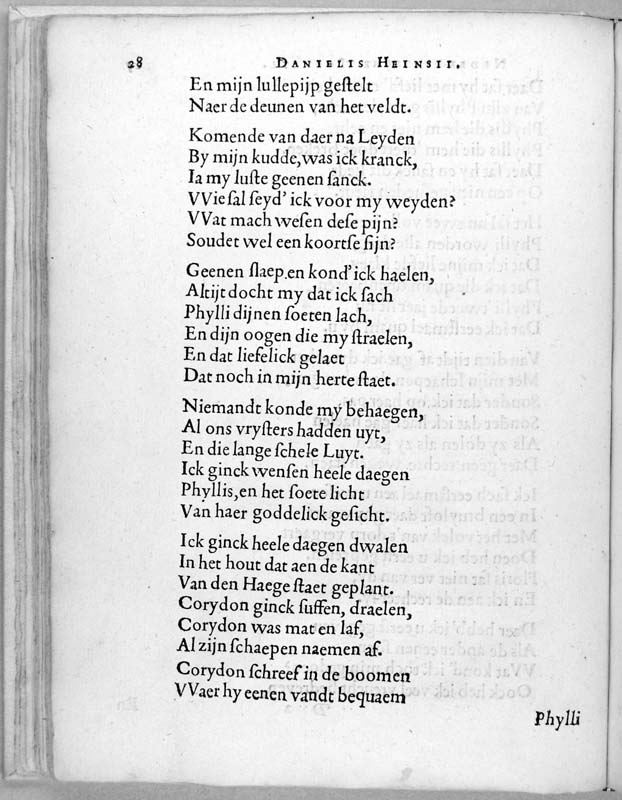 28 DANIELIS HEINSII.
En mijn lullepijp geſtelt
Naer de deunen van het veldt.
Komende van daer na Leyden
By mijn kudde, was ick kranck,
Ia my luſte geenen ſanck.
VVie ſal ſeyd' ick voor my weyden?
VVat mach weſen deſe pijn?
Soudet wel een koortſe ſijn?
Geenen ſlaep, en kond' ick haelen,
Altijt docht my dat ick ſach
Phylli dijnen ſoeten lach,
En dijn oogen die my ſtraelen,
En dat liefelick gelaet
Dat noch in mijn herte ſtaet.
Niemandt konde my behaegen,
Al ons vryſters hadden uyt,
En die lange ſchele Luyt.
Ick ginck wenſen heele daegen
Phyllis, en het ſoete licht
Van haer goddelick geſicht.
Ick ginck heele daegen dwalen
In het hout dat aen de kant
Van den Haege ſtaet geplant.
Corydon ginck ſuffen, draelen,
Corydon was mat en laf,
Al zijn ſchaepen naemen af.
Corydon ſchreef in de boomen
VVaer hy eenen vandt bequaem
Phylli